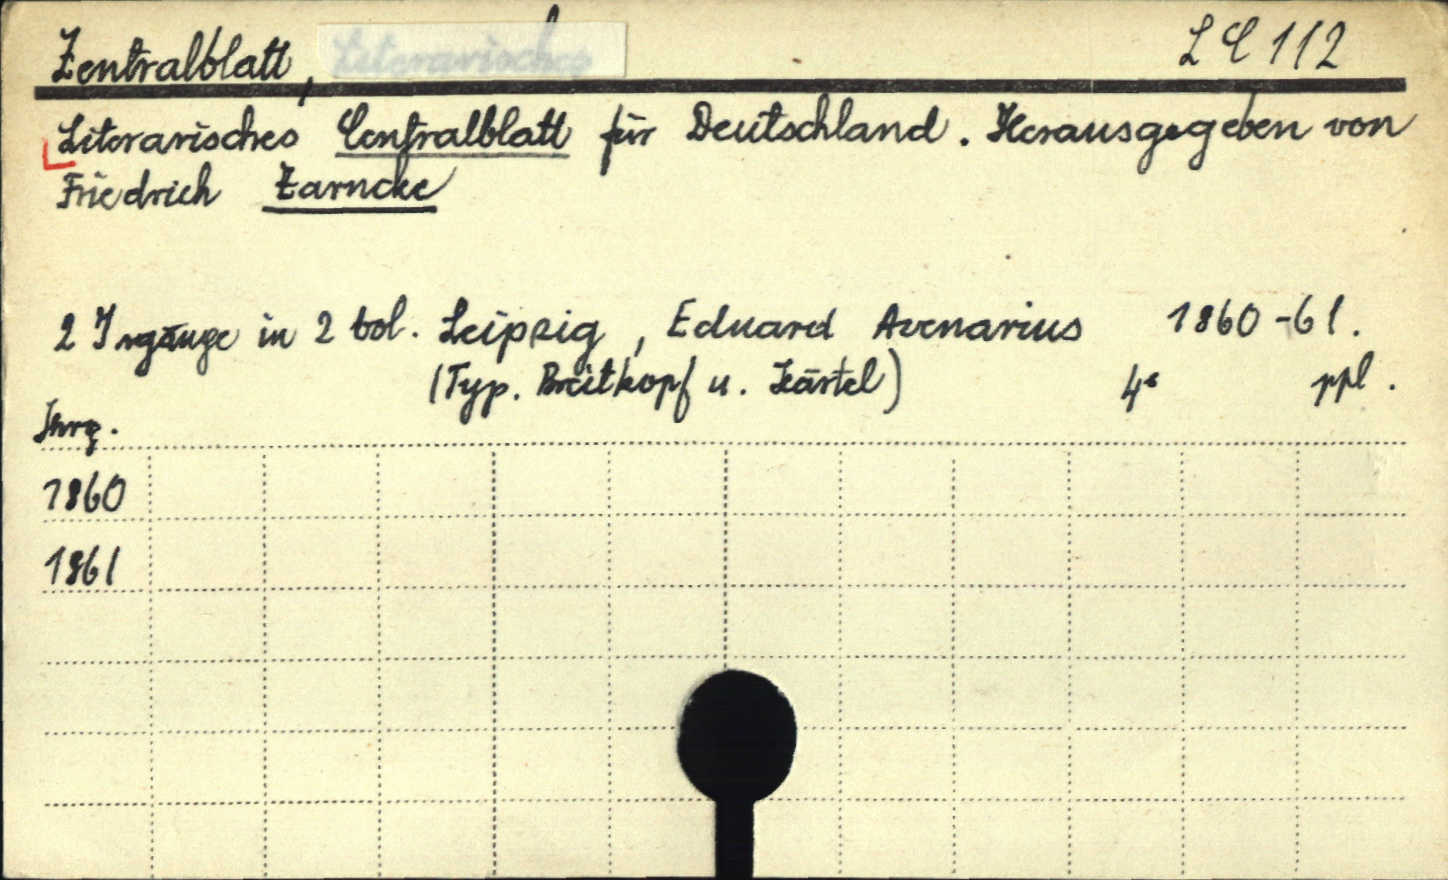 Zentralblatt, Literarisches LC 112
Literarisches Centralblatt für Deutschland. Herausgegeben von
Friedrich Zarncke
2 Jrgänge in 2 bd. Leipzig, Eduard Avenarius 1860-61.
(Typ. Breitkopf u. Härtel) 4° ppl.
Jhrg.
1860
1861